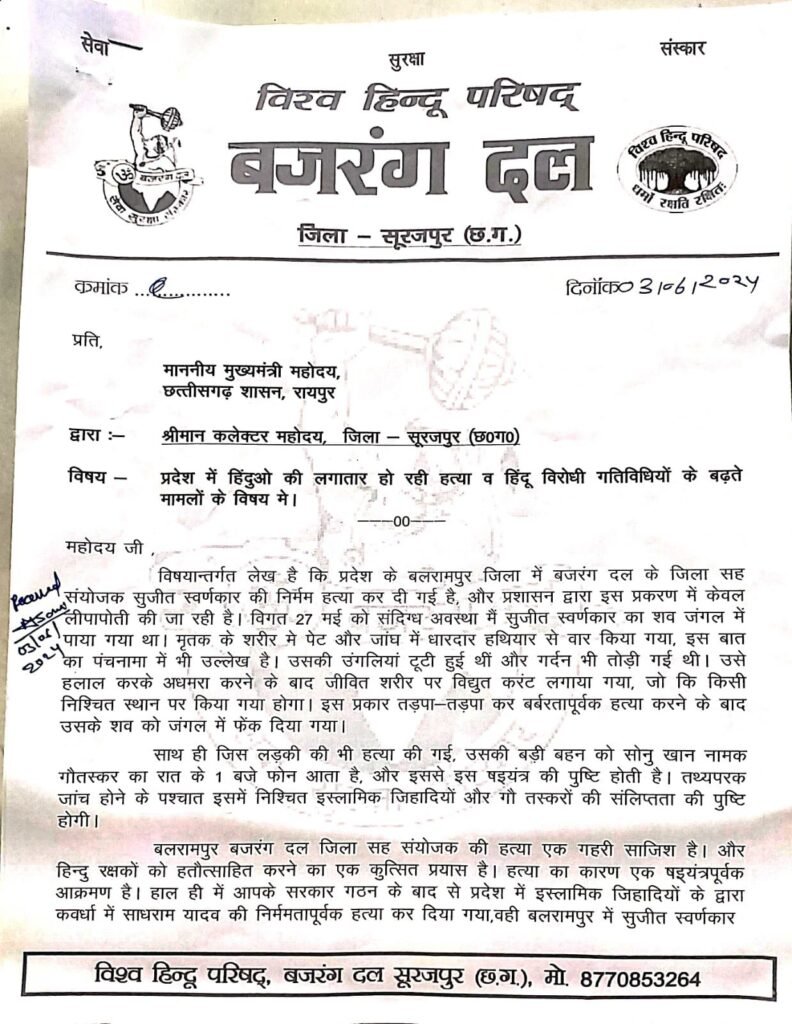 सेवा
सुरक्षा
संस्कार
विश्व हिन्दू परिषद्
बजरंग दल
बजरंग दल
सेवा सुरक्षा संस्कार
विश्व हिन्दू परिषद
धर्मो रक्षति रक्षितः
जिला – सूरजपुर (छ.ग.)
क्रमांक ...............
दिनॉंक 03/06/2024
प्रति,
माननीय मुख्यमंत्री महोदय,
छत्तीसगढ़ शासन, रायपुर
द्वारा :– श्रीमान कलेक्टर महोदय, जिला – सूरजपुर (छ0ग0)
विषय – प्रदेश में हिंदुओ की लगातार हो रही हत्या व हिंदू विरोधी गतिविधियों के बढ़ते
मामलों के विषय मे।
–––00–––
महोदय जी ,
विषयान्तर्गत लेख है कि प्रदेश के बलरामपुर जिला में बजरंग दल के जिला सह
संयोजक सुजीत स्वर्णकार की निर्मम हत्या कर दी गई है, और प्रशासन द्वारा इस प्रकरण में केवल
लीपापोती की जा रही है। विगत 27 मई को संदिग्ध अवस्था मैं सुजीत स्वर्णकार का शव जंगल में
पाया गया था। मृतक के शरीर मे पेट और जांघ में धारदार हथियार से वार किया गया, इस बात
का पंचनामा में भी उल्लेख है। उसकी उंगलियां टूटी हुई थीं और गर्दन भी तोड़ी गई थी। उसे
हलाल करके अधमरा करने के बाद जीवित शरीर पर विद्युत करंट लगाया गया, जो कि किसी
निश्चित स्थान पर किया गया होगा। इस प्रकार तड़पा–तड़पा कर बर्बरतापूर्वक हत्या करने के बाद
उसके शव को जंगल में फेंक दिया गया।
Received
03/06/
2024
साथ ही जिस लड़की की भी हत्या की गई, उसकी बड़ी बहन को सोनु खान नामक
गौतस्कर का रात के 1 बजे फोन आता है, और इससे इस षड्यंत्र की पुष्टि होती है। तथ्यपरक
जांच होने के पश्चात इसमें निश्चित इस्लामिक जिहादियों और गौ तस्करों की संलिप्तता की पुष्टि
होगी।
बलरामपुर बजरंग दल जिला सह संयोजक की हत्या एक गहरी साजिश है। और
हिन्दु रक्षकों को हतौत्साहित करने का एक कुत्सित प्रयास है। हत्या का कारण एक षड्यंत्रपूर्वक
आक्रमण है। हाल ही में आपके सरकार गठन के बाद से प्रदेश में इस्लामिक जिहादियों के द्वारा
कवर्धा में साधराम यादव की निर्ममतापूर्वक हत्या कर दिया गया,वही बलरामपुर में सुजीत स्वर्णकार
विश्व हिन्दू परिषद्, बजरंग दल सूरजपुर (छ.ग.), मो. 8770853264